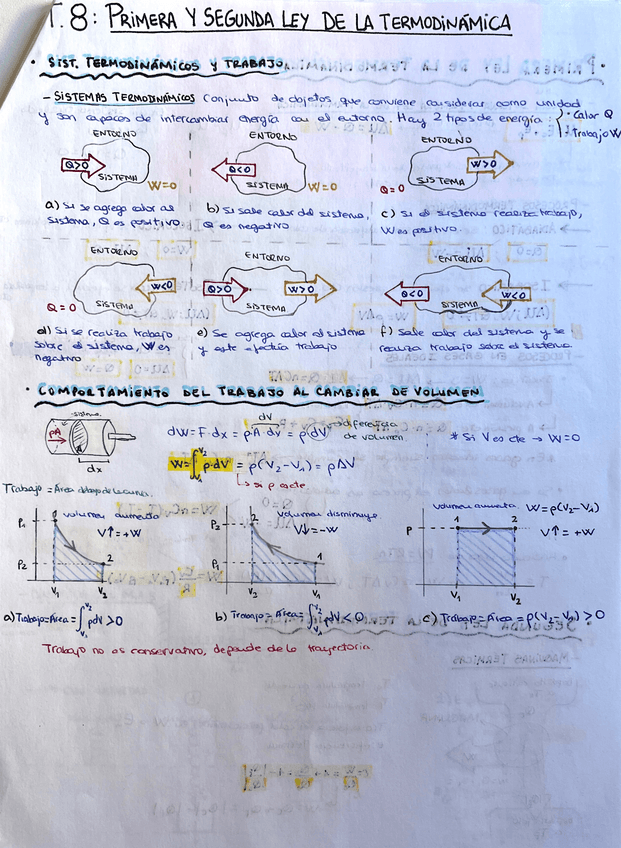 T.8: PRIMERA Y SEGUNDA LEY DE LA TERMODINÁMICA
· SIST. TERMODINÁMICOS Y TRABAJO
- SISTEMAS TERMODINÁMICOS Conjunto de objetos que conviene considerar como unidad
y son capaces de intercambiar energía con el entorno. Hay 2 tipos de energía { · Calor Q
· Trabajo W
ENTORNO
Q>0
SISTEMA
W=0
ENTORNO
Q<0
SISTEMA
W=0
ENTORNO
W>0
Q=0
SISTEMA
a) si se agrega calor al
sistema, Q es positivo.
b) Si sale calor del sistema,
Q es negativo
c) Si el sistema realiza trabajo,
W es positivo.
ENTORNO
W<0
Q=0
SISTEMA
ENTORNO
Q>0
W>0
SISTEMA
ENTORNO
Q<0
W<0
SISTEMA
d) Si se realiza trabajo
sobre el sistema, W es
negativo
e) Se agrega calor al sistema
y este efectúa trabajo
f) Sale calor del sistema y se
realiza trabajo sobre el sistema
· COMPORTAMIENTO DEL TRABAJO AL CAMBIAR DE VOLUMEN
sistema
pA
A
dx
dW=F·dx = p·A·dx = p·dV → diferencia
de volumen
dV
* Si V es cte → W=0
W=∫V₁V₂ p·dV = p(V₂-V₁) = pΔV
↳ si p es cte
Trabajo = Área debajo de la curva.
P₁
P₂
1
2
V₁
V₂
volumen aumenta
V↑=+W
P₂
P₁
2
1
V₂
V₁
volumen disminuye
V↓=-W
P
1
2
V₁
V₂
volumen aumenta
W=p(V₂-V₁)
V↑=+W
a) Trabajo=Área=∫V₁V₂ pdV>0
b) Trabajo=Área=∫V₁V₂ pdV<0
c) Trabajo=Área=p(V₂-V₁)>0
Trabajo no es conservativo, depende de la trayectoria